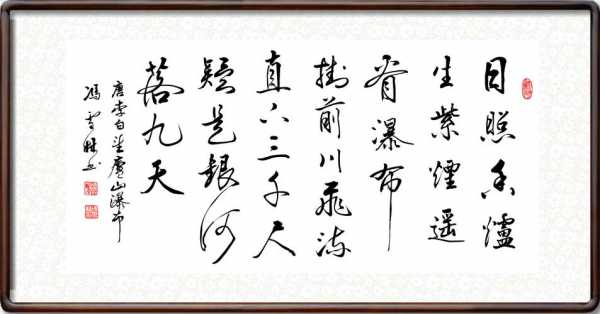 日照香爐
生紫煙遙
看瀑布
掛前川飛流
直下三千尺
疑是銀河
落九天
唐李白望廬山瀑布
馮雪林书